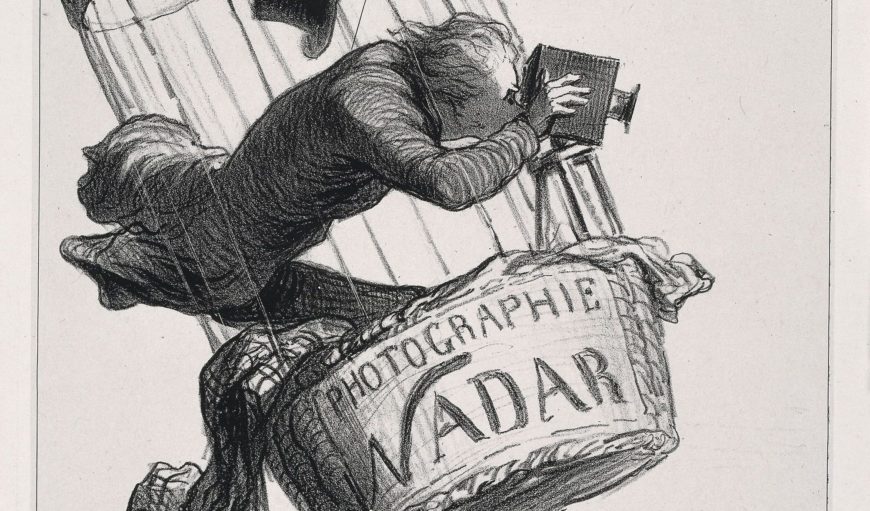 PHOTOGRAPHIE
NADAR